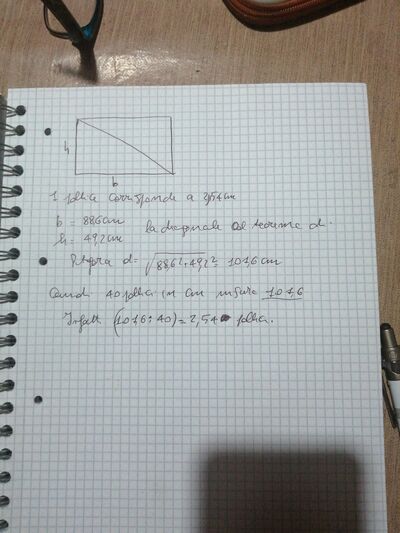 h
b
1 pollice corrisponde a 2,54 cm
b = 88,6 cm
h = 49,2 cm
la diagonale col teorema di
Pitagora d = √88,6²+49,2² = 101,6 cm
Quindi 40 pollici in cm misura 101,6
Infatti (101,6:40) = 2,54 pollici.